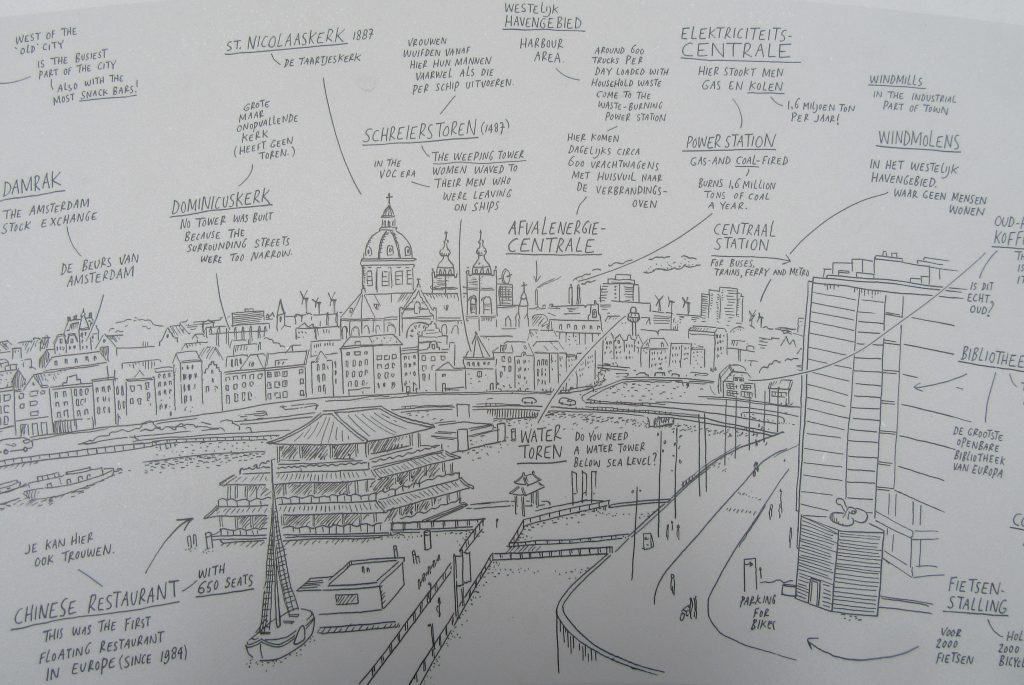 WEST OF THE
'OLD' CITY
IS THE BUSIEST
PART OF THE CITY
ALSO WITH THE
MOST SNACK BARS!
ST. NICOLAASKERK 1887
DE TAARTJESKERK
VROUWEN
WUIFDEN VANAF
HIER HUN MANNEN
VAARWEL ALS DIE
PER SCHIP UITVOEREN.
WESTELIJK
HAVENGEBIED
HARBOUR
AREA.
AROUND 600
TRUCKS PER
DAY LOADED WITH
HOUSEHOLD WASTE
COME TO THE
WASTE-BURNING
POWER STATION
ELEKTRICITEITS-
CENTRALE
HIER STOOKT MEN
GAS EN KOLEN
1,6 MILJOEN TON
PER JAAR!
WINDMILLS
IN THE INDUSTRIAL
PART OF TOWN
GROTE
MAAR
ONOPVALLENDE
KERK
(HEEFT GEEN
TOREN.)
SCHREIERSTOREN (1487)
IN THE
VOC ERA
THE WEEPING TOWER
WOMEN WAVED TO
THEIR MEN WHO
WERE LEAVING
ON SHIPS
HIER KOMEN
DAGELIJKS CIRCA
600 VRACHTWAGENS
MET HUISVUIL NAAR
DE VERBRANDINGS-
OVEN
POWER STATION
GAS-AND COAL-FIRED
BURNS 1,6 MILLION
TONS OF COAL
A YEAR.
WINDMOLENS
IN HET WESTELIJK
HAVENGEBIED.
WAAR GEEN MENSEN
WONEN
DAMRAK
THE AMSTERDAM
STOCK EXCHANGE
DE BEURS VAN
AMSTERDAM
DOMINICUSKERK
NO TOWER WAS BUILT
BECAUSE THE
SURROUNDING STREETS
WERE TOO NARROW.
AFVALENERGIE-
CENTRALE
CENTRAAL
STATION
FOR BUSES,
TRAINS, FERRY AND METRO
IS DIT
ECHT
OUD?
DE GROOTSTE
OPENBARE
BIBLIOTHEEK
VAN EUROPA
WATER
TOREN
DO YOU NEED
A WATER TOWER
BELOW SEA LEVEL?
JE KAN HIER
OOK TROUWEN.
CHINESE RESTAURANT
WITH
650 SEATS
THIS WAS THE FIRST
FLOATING RESTAURANT
IN EUROPE (SINCE 1984)
PARKING
FOR
BIKES
FIETSEN-
STALLING
VOOR
2000
FIETSEN
2000